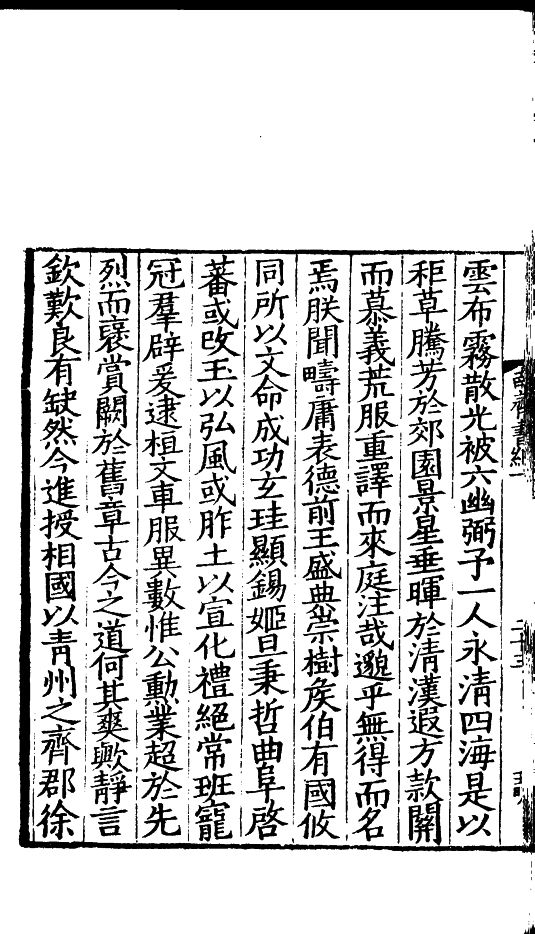 雲布霧散光被六幽弼予一人永清四海是以
秬草騰芳於郊園景星垂暉於清漢遐方款關
而慕義荒服重譯而來庭汪哉邈乎無得而名
焉朕聞疇庸表德前王盛典崇樹矦伯有國攸
同所以文命成功玄珪顯錫姬旦秉哲曲阜啓
蕃或改玉以弘風或胙土以宣化禮絕常班寵
冠羣辟爰逮桓文車服異數惟公勳業超於先
烈而襃賞闕於舊章古今之道何其爽歟靜言
欽歎良有缺然今進授相國以青州之齊郡徐